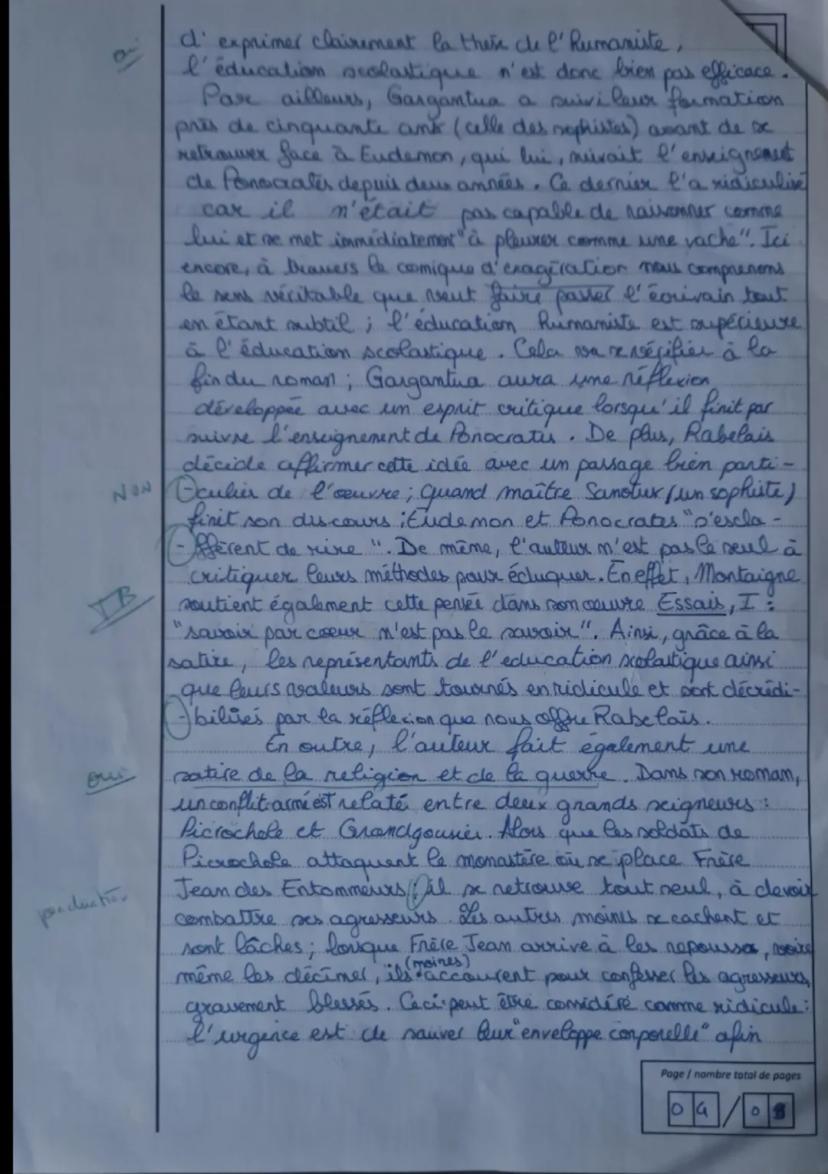 oui
d'exprimer clairement la thèse de l'Humaniste,
l'éducation scolastique n'est donc bien pas efficace.
Par ailleurs, Gargantua a suivi leur formation
près de cinquante ans (celle des sophistes) avant de se
retrouver face à Eudemon, qui lui, suivait l'enseignement
de Ponocrates depuis deux années. Ce dernier l'a ridiculisé
car il n'était pas capable de raisonner comme
lui et se met immédiatement "à pleurer comme une vache". Ici
encore, à travers le comique d'exagération nous comprenons
le sens véritable que veut faire passer l'écrivain tout
en étant subtil ; l'éducation humaniste est supérieure
à l'éducation scolastique. Cela va se vérifier à la
fin du roman ; Gargantua aura une réflexion
développée avec un esprit critique lorsqu'il finit par
suivre l'enseignement de Ponocrates. De plus, Rabelais
décide affirmer cette idée avec un passage bien parti-
NON -culier de l'œuvre ; quand maître (un sophiste)
finit son discours ; Eudemon et Ponocrates "s'escla-
-ffèrent de rire". De même, l'auteur n'est pas le seul à
critiquer leurs méthodes pour éduquer. En effet, Montaigne
TB soutient également cette pensée dans son œuvre Essais, I :
"savoir par coeur n'est pas le savoir". Ainsi, grâce à la
satire, les représentants de l'education scolastique ainsi
que leurs valeurs sont tournés en ridicule et sont décrédi-
-bilisés par la réflexion que nous offre Rabelais.
En outre, l'auteur fait également une
oui satire de la religion et de la guerre. Dans son roman,
un conflit armé est relaté entre deux grands seigneurs :
Picrochole et Grandgousier. Alors que les soldats de
Picrochole attaquent le monastère où se place Frère
ponctuation Jean des Entommeurs ; il se retrouve tout seul, à devoir
combattre ses agresseurs. Les autres moines se cachent et
sont lâches ; lorsque Frère Jean arrive à les repousser, voire
même les décimer, ils (moines) accourent pour confesser les agresseurs
gravement blessés. Ceci peut être considéré comme ridicule :
l'urgence est de sauver leur "enveloppe corporelle" afin
Page / nombre total de pages
04 / 08